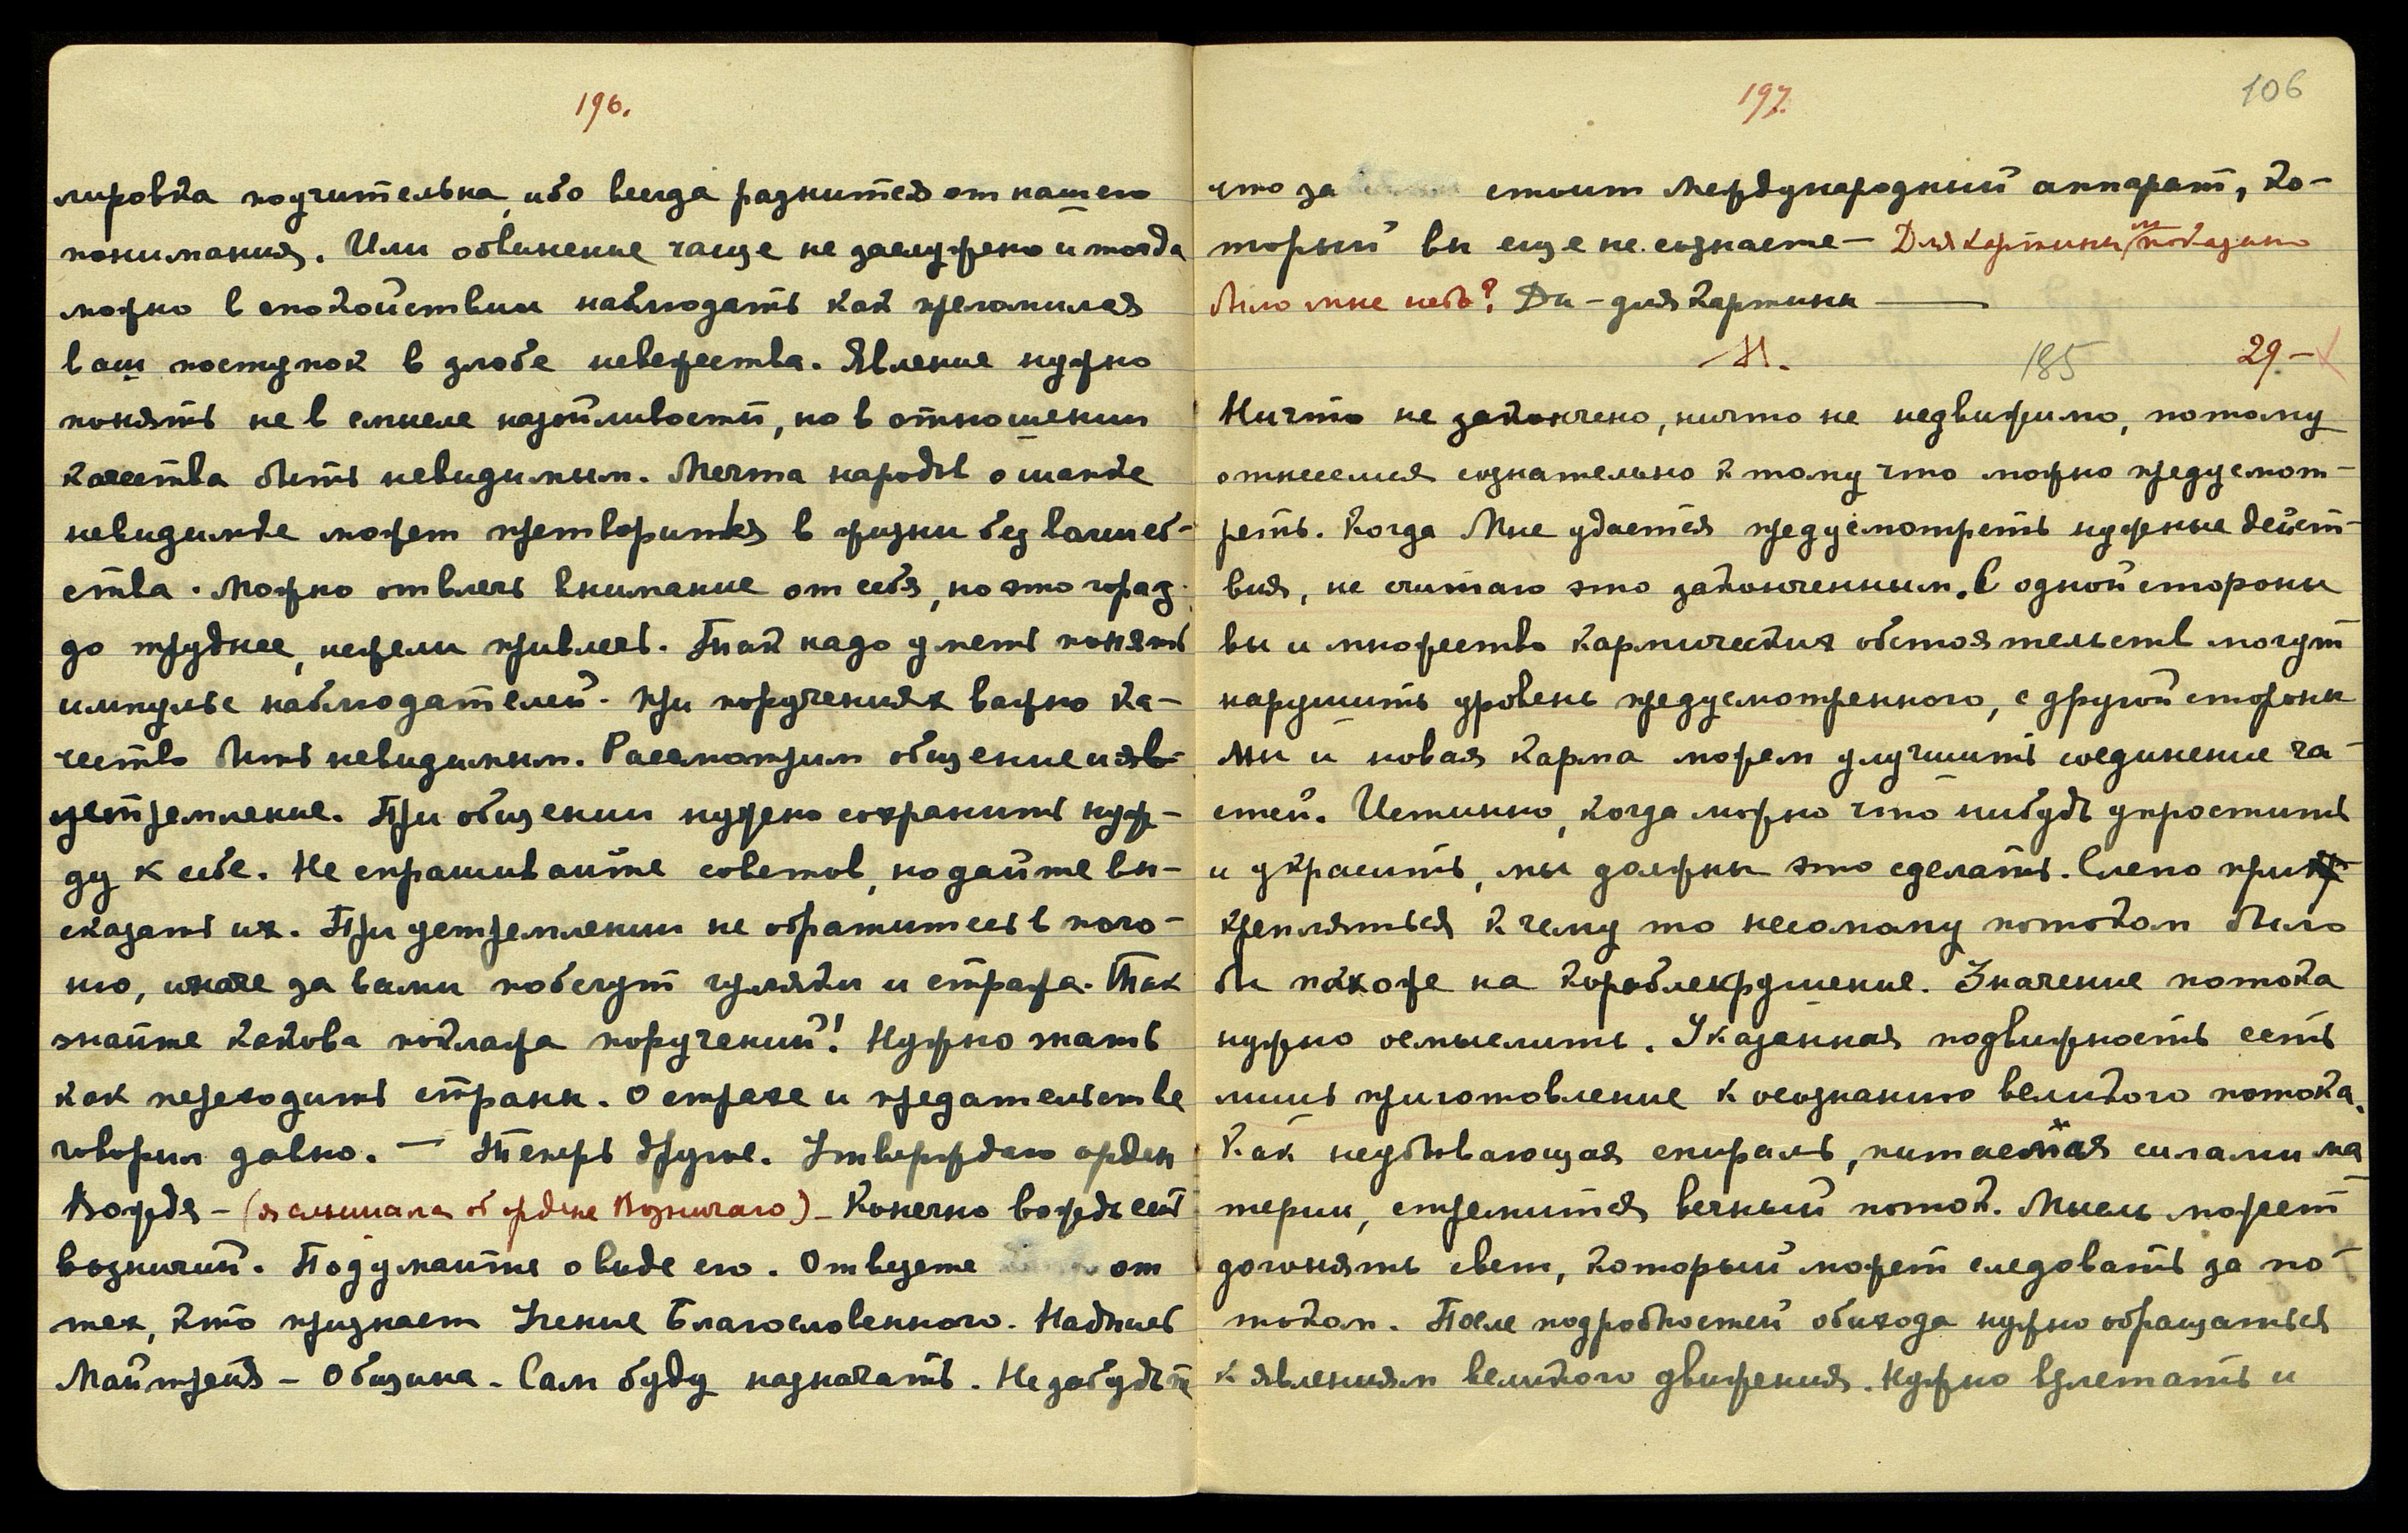 196.
лировка поучительна, ибо всегда разнится от нашего
понимания. Или обвинение чаще не заслужено и тогда
можно в спокойствии наблюдать как преломился
ваш поступок в злобе невежества. Явление нужно
понять не в смысле назойливости, но в отношении
качества быть невидимым. Мечта народов о шапке
невидимке может претвориться в жизни без волшеб-
ства. Можно отвлечь внимание от себя, но это гораз-
до труднее, нежели привлечь. Так надо уметь понять
импульс наблюдателей. При поручениях важно ка-
чество быть невидимым. Рассмотрим общение и
устремление. При общении нужно сохранить нуж-
ду к себе. Не спрашивайте советов, но дайте вы-
сказать их. При устремлении не обратитесь в пого-
ню, иначе за вами побегут гуляки и стража. Так
знайте какова поклажа поручений! Нужно знать
как переходить страны. О страхе и предательстве
говорил давно. — Теперь другое. Утверждаю орден
Вождя – (я слышала об ордене Возничаго) – Конечно вождь есть
возничий. Подумайте о виде его. Отвезете от
тех, кто признает Учение Благословенного. Надпись
Майтрейя – Община – Сам буду назначать. Не забудьте
197.
106
что за стоит международный аппарат, ко-
торый вы еще не сознаете – Для картины ли показано
было мне небо? Да – для картины —
185
29 –
Ничто не закончено, ничто не недвижимо, потому
отнесемся сознательно к тому что можно предусмот-
реть. Когда Мне удается предусмотреть нужные дейст-
вия, не считаю это законченным. С одной стороны
вы и множество кармических обстоятельств могут
нарушить уровень предусмотренного, с другой стороны
мы и новая карма может улучшить соединение ча-
стей. Истинно, когда можно что нибудь упростить
и украсить, мы должны это сделать. Слепо при
крепляться к чему то несомому потоком было
бы похоже на кораблекрушение. Значение потока
нужно осмыслить. Указанная подвижность есть
лишь приготовление к осознанию великого потока.
Как неубывающая спираль, питаемая силами ма
терии, стремится вечный поток. Мысль может
догонять свет, который может следовать за по-
током. После подробностей обихода нужно обращаться
к явлениям великого движения. Нужно взлетать и